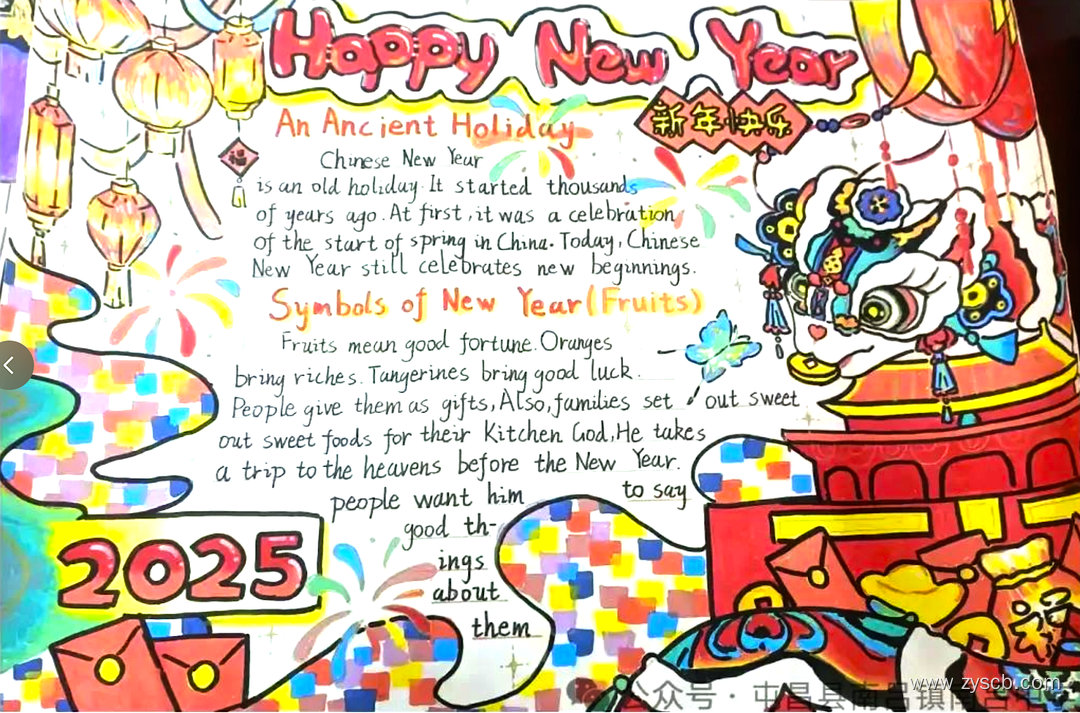 Happy New Year
新年快乐
An Ancient Holiday
福
Chinese New Year
is an old holiday. It started thousands
of years ago. At first, it was a celebration
of the start of spring in China. Today, Chinese
New Year still celebrates new beginnings.
Symbols of New Year (Fruits)
Fruits mean good fortune. Oranges
bring riches. Tangerines bring good luck.
People give them as gifts, Also, families set out sweet
out sweet foods for their Kitchen God, He takes
a trip to the heavens before the New Year.
people want him to say
good th-
ings
about
them
2025
福
公众号·屯昌县南吕镇
www.zyscb.com